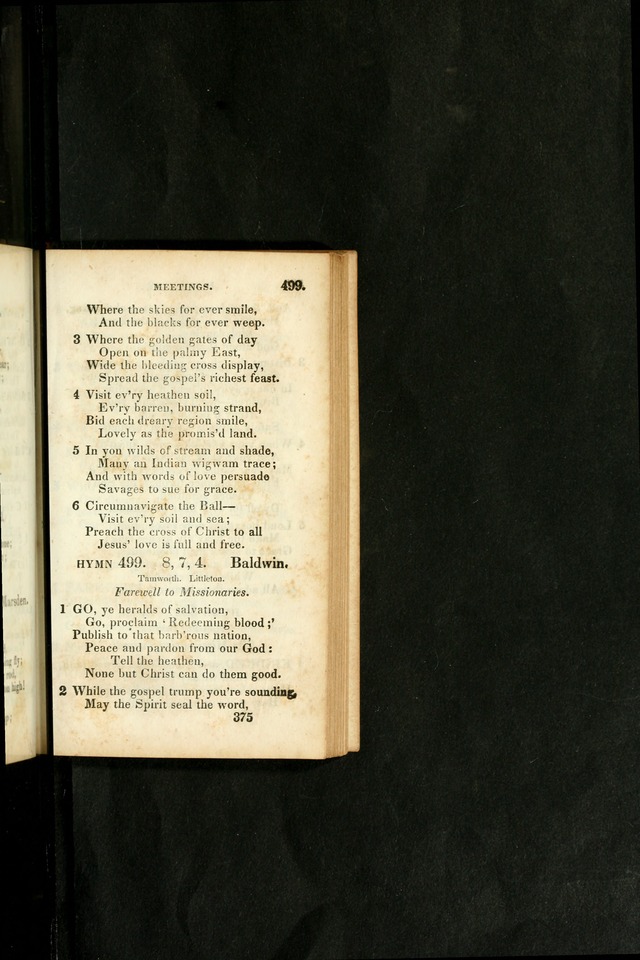 MEETINGS. 499.
Where the skies for ever smile,
And the blacks for ever weep.
3 Where the golden gates of day
Open on the palmy East,
Wide the bleeding cross display,
Spread the gospel's richest feast.
4 Visit ev'ry heathen soil,
Ev'ry barren, burning strand,
Bid each dreary region smile,
Lovely as the promis'd land.
5 In yon wilds of stream and shade,
Many an Indian wigwam trace;
And with words of love persuade
Savages to sue for grace.
6 Circumnavigate the Ball—
Visit ev'ry soil and sea;
Preach the cross of Christ to all
Jesus' love is full and free.
HYMN 499. 8, 7, 4. Baldwin.
Tamworth. Littleton.
Farewell to Missionaries.
1 GO, ye heralds of salvation,
Go, proclaim ‘Redeeming blood;’
Publish to that barb'rous nation,
Peace and pardon from our God:
Tell the heathen,
None but Christ can do them good.
2 While the gospel trump you're sounding,
May the Spirit seal the word,
375